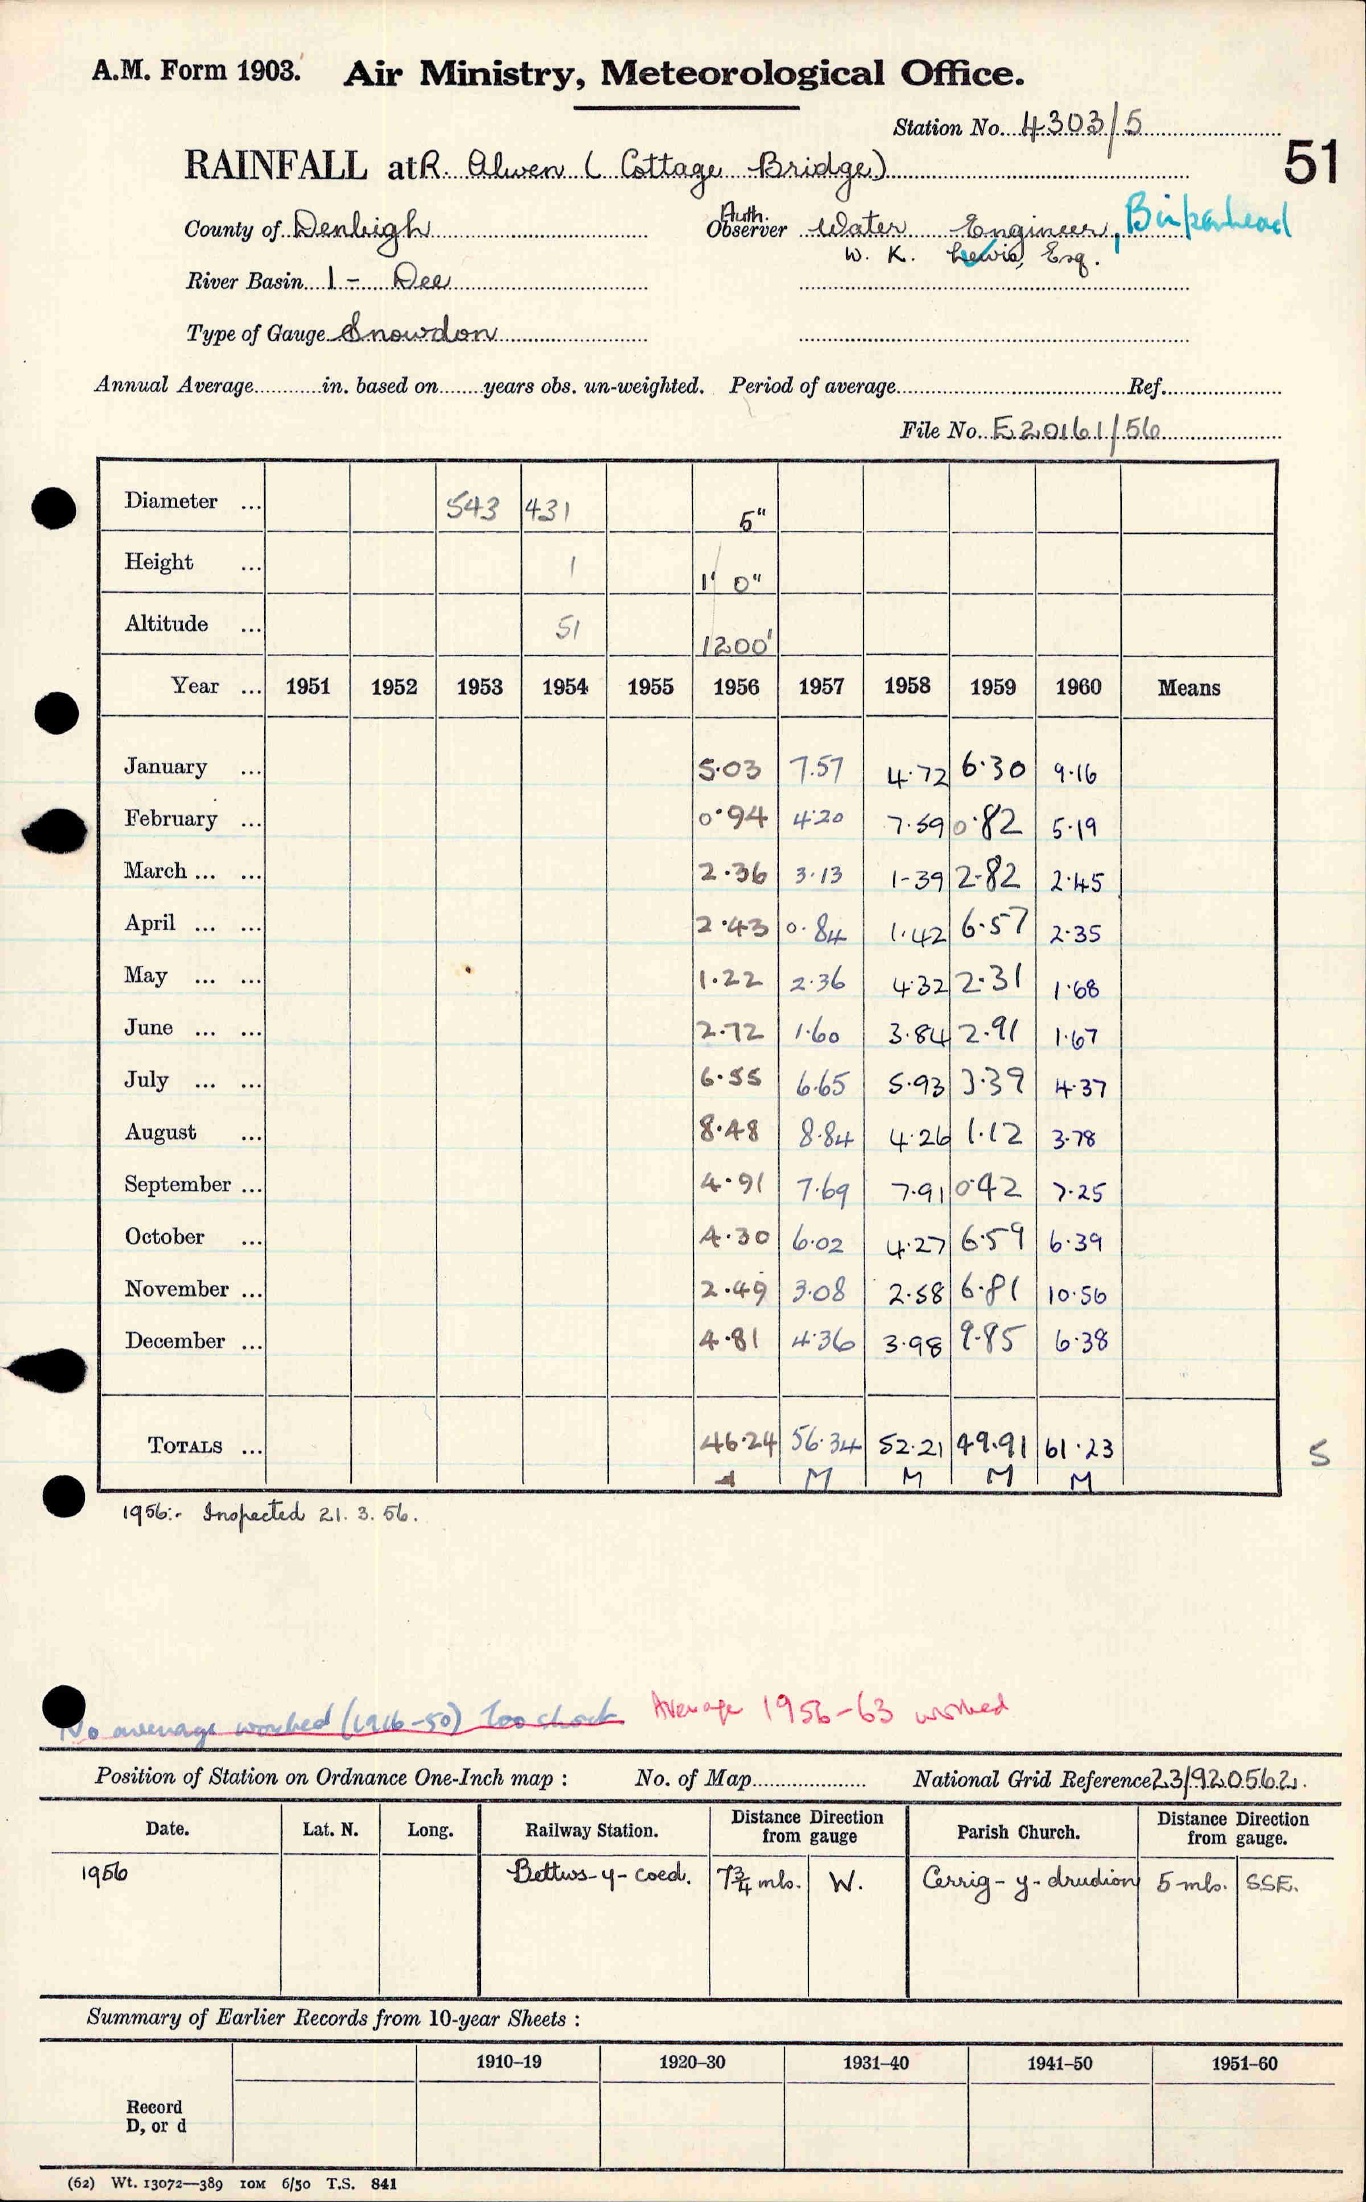 A.M. Form 1903. Air Ministry, Meteorological Office.
Station No. 4303/5
51
RAINFALL at R. Alwen ( Cottage Bridge)
County of Denbigh Auth. Observer Water Engineer, Birkenhead
W. K. Lewis, Esq.
River Basin 1 - Dee
Type of Gauge Snowdon
Annual Average in. based on years obs. un-weighted. Period of average Ref.
File No. E20161/56
Diameter ... 543 431 5"
Height ... 1 1' 0"
Altitude ... 51 1200'
Year ... 1951 1952 1953 1954 1955 1956 1957 1958 1959 1960 Means
January ... 5.03 7.57 4.72 6.30 9.16
February ... 0.94 4.20 7.59 0.82 5.19
March ... ... 2.36 3.13 1.39 2.82 2.45
April ... ... 2.43 0.84 1.42 6.57 2.35
May ... ... 1.22 2.36 4.32 2.31 1.68
June ... ... 2.72 1.60 3.84 2.91 1.67
July ... ... 6.55 6.65 5.93 3.39 4.37
August ... 8.48 8.84 4.26 1.12 3.78
September ... 4.91 7.69 7.91 0.42 7.25
October ... 4.30 6.02 4.27 6.59 6.39
November ... 2.49 3.08 2.58 6.81 10.56
December ... 4.81 4.36 3.98 9.85 6.38
TOTALS ... 46.24 56.34 52.21 49.91 61.23 S
M M M M
1956:- Inspected 21. 3. 56.
No average worked (1916-50) Too short Average 1956-63 worked
Position of Station on Ordnance One-Inch map : No. of Map National Grid Reference 23/920562.
Date. Lat. N. Long. Railway Station. Distance Direction from gauge Parish Church. Distance Direction from gauge.
1956 Bettws-y-coed. 7¾ mls. W. Cerrig-y-drudion 5 mls. SSE.
Summary of Earlier Records from 10-year Sheets :
1910–19 1920–30 1931–40 1941–50 1951–60
Record
D, or d
(62) Wt. 13072—389 10M 6/50 T.S. 841